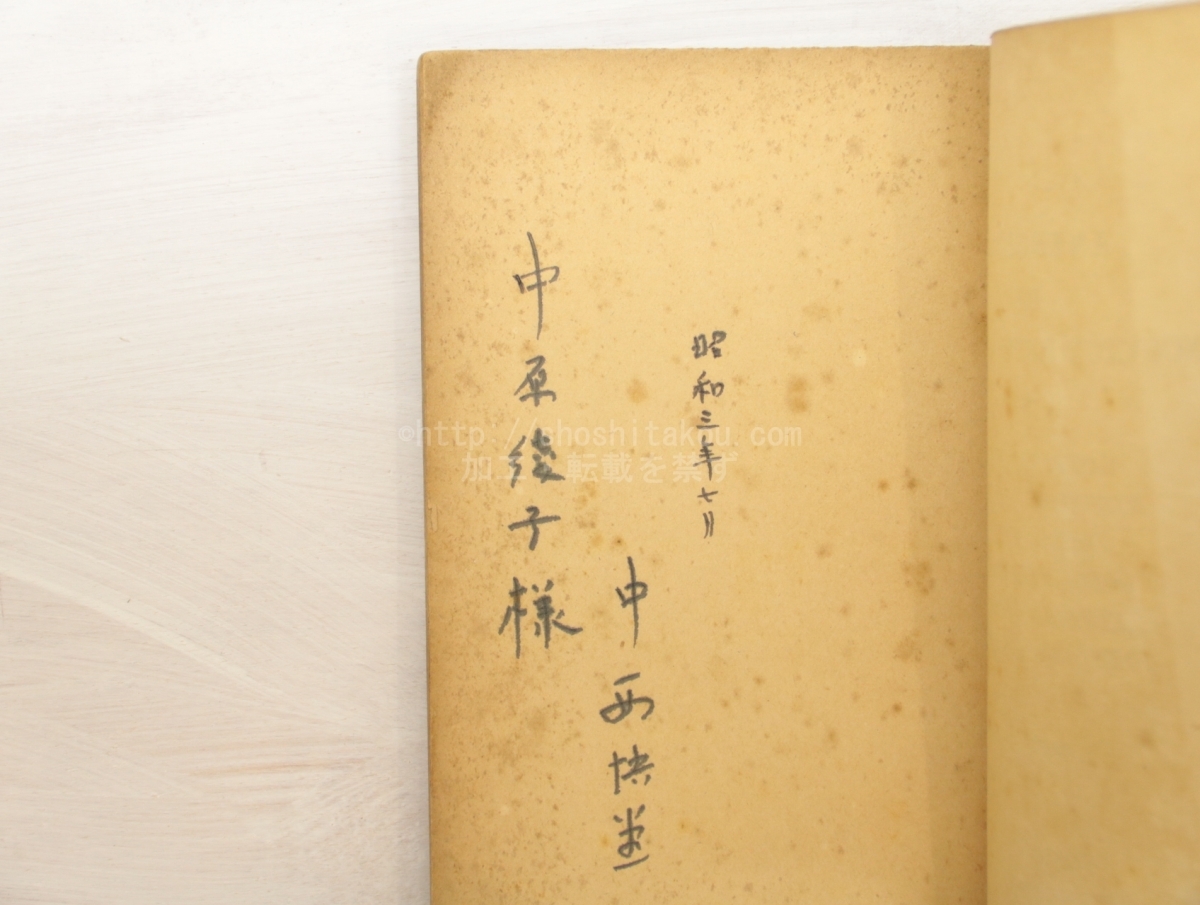 昭和三年七月
中西悟堂
中原綾子様
©http://shoshitakou.com
加工・転載を禁ず